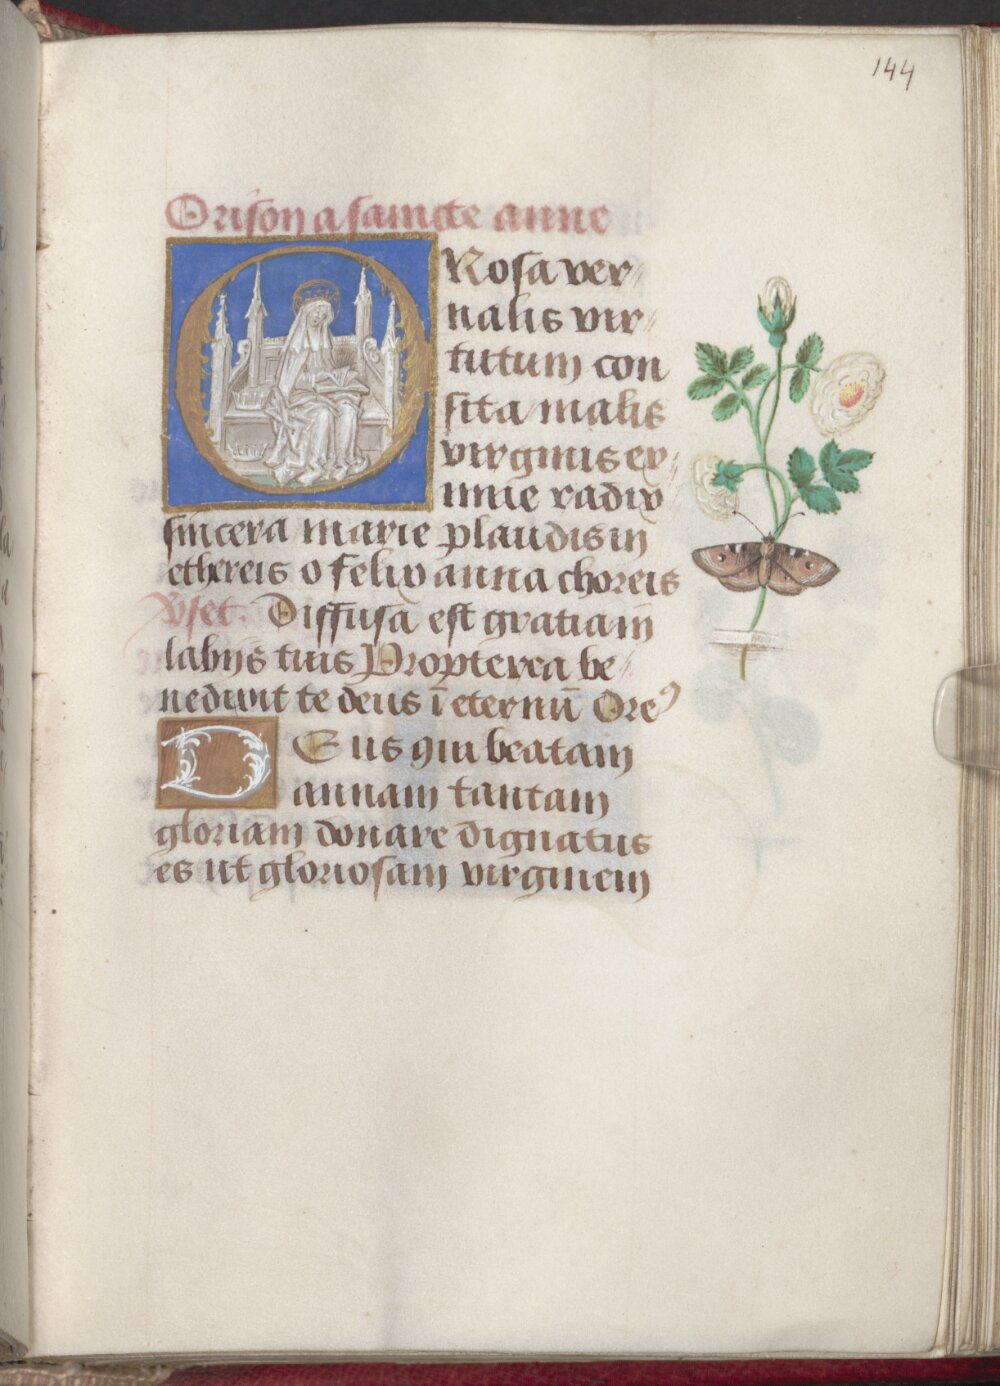 144
Orison a saincte anne
O Rosa ver
nalis vir
tutum con
sita malis
virginis ex
imie radix
sincera marie plaudis in
ethereis o felix anna choreis
Vset. Diffusa est gratia in
labijs tuis Propterea be
nedixit te deus ī eternū Oreꝯ
DEus qui beatam
annam tantam
gloriam donare dignatus
es ut gloriosam virginem